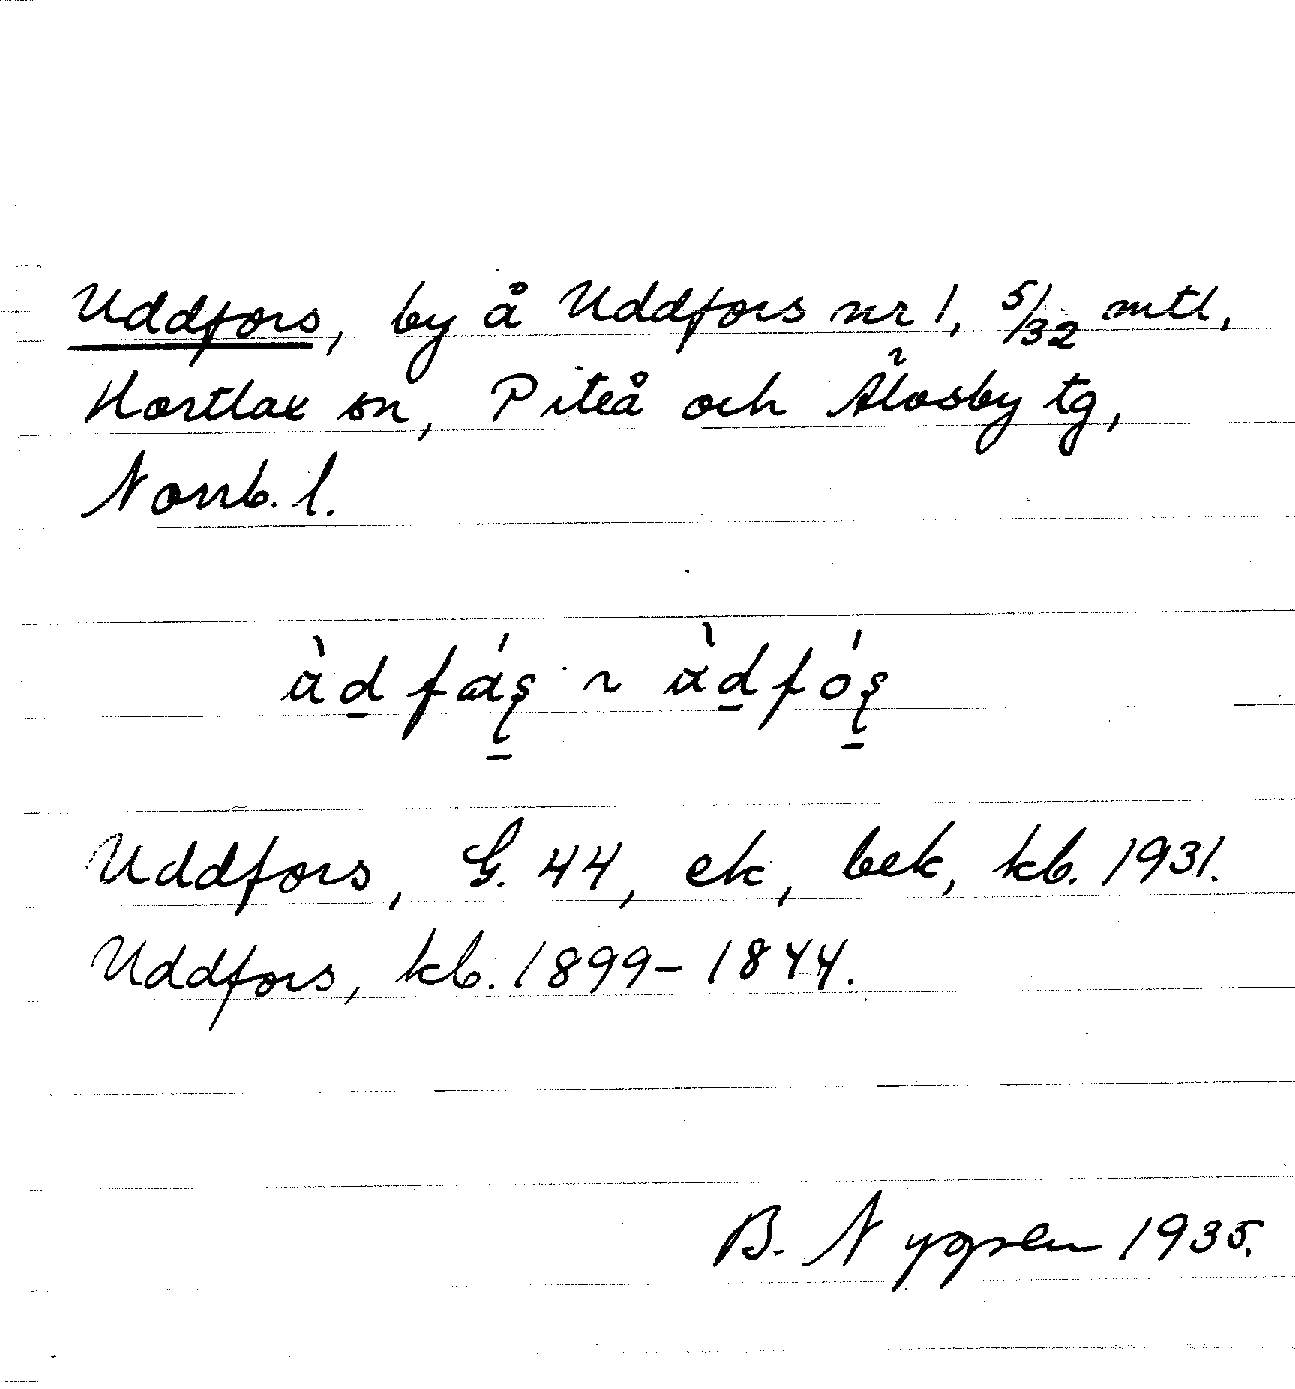 Uddfors, by å Uddfors nr 1, 5/32 mtl,
Hortlax sn, Piteå och Älvsby tg,
Norrb. l.
àd̲fáş̲ ~ àd̲fóş̲
Uddfors, G. 44, ek, bek, kb. 1931.
Uddfors, kb. 1899-1844.
B. Nygren 1935.